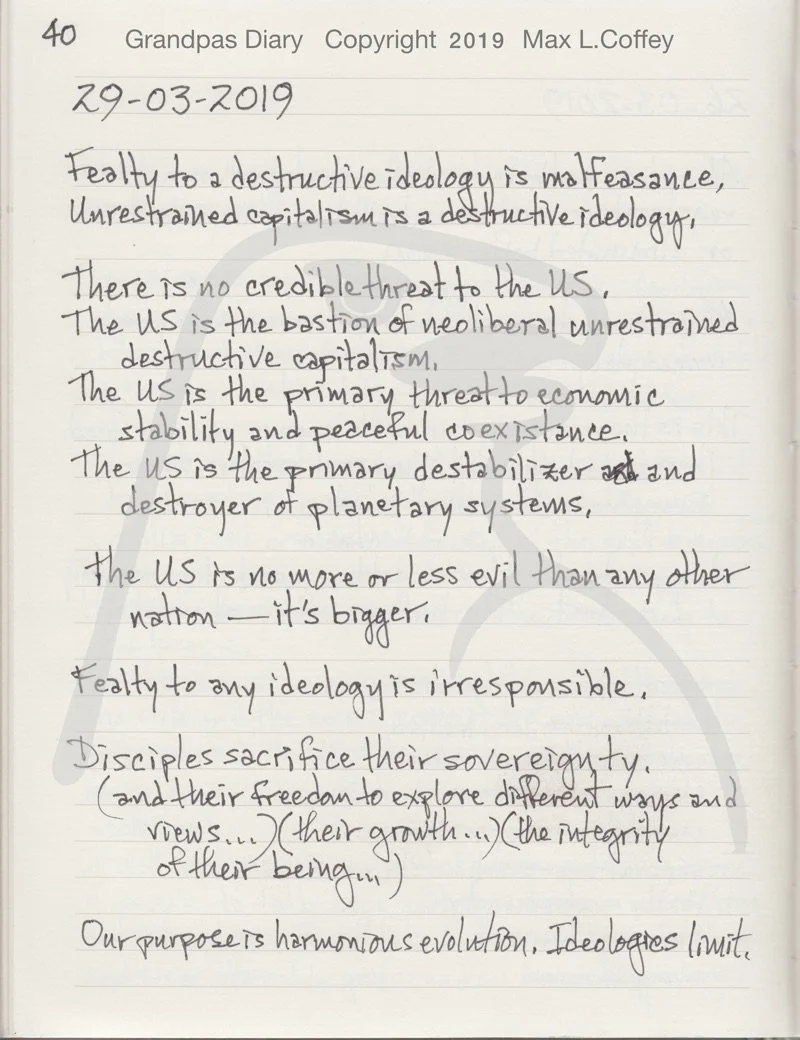 40 Grandpas Diary Copyright 2019 Max L.Coffey
29-03-2019
Fealty to a destructive ideology is malfeasance,
Unrestrained capitalism is a destructive ideology.
There is no credible threat to the US.
The US is the bastion of neoliberal unrestrained
destructive capitalism.
The US is the primary threat to economic
stability and peaceful coexistance.
The US is the primary destabilizer and
destroyer of planetary systems.
The US is no more or less evil than any other
nation — it's bigger.
Fealty to any ideology is irresponsible.
Disciples sacrifice their sovereignty.
(and their freedom to explore different ways and
views...) (their growth...) (the integrity
of their being...)
Our purpose is harmonious evolution. Ideologies limit.